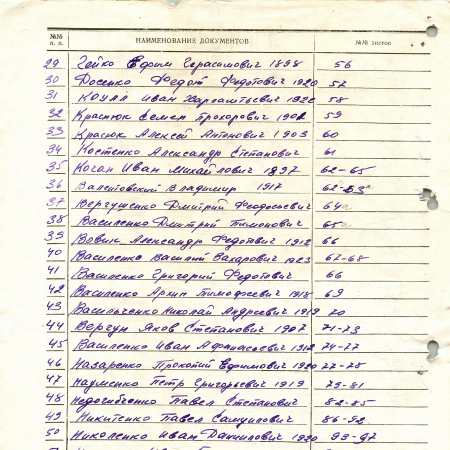 №№ п. п. НАИМЕНОВАНИЕ ДОКУМЕНТОВ №№ листов
29 Гейко Ефим Герасимович 1898 56
30 Досенко Федот Федотович 1920 57
31 Коула Иван Харлампьевич 1926 58
32 Краснюк Семен Прохорович 1902 59
33 Красюк Алексей Антонович 1903 60
34 Костенко Александр Степанович 61
35 Коган Иван Михайлович 1897 62-65
36 Валетовский Владимир 1917 62-63а
37 Вергушенко Дмитрий Феодосьевич 64а
38 Василенко Дмитрий Тимонович 65а
39 Вовик Александр Федотович 1912 66
40 Василенко Василий Захарович 1923 67-68
41 Василенко Григорий Федотович 66
42 Василенко Архип Тимофеевич 1918 69
43 Васильченко Николай Андреевич 1919 70
44 Вергун Яков Степанович 1907 71-73
45 Василенко Иван Афанасьевич 1912 74-77
46 Назаренко Прокопий Ефимович 1920 77-78
47 Науменко Петр Григорьевич 1919 79-81
48 Недогибенко Павел Степанович 82-85
49 Никитенко Павел Самуилович 86-92
50 Николенко Иван Даниилович 1920 93-97